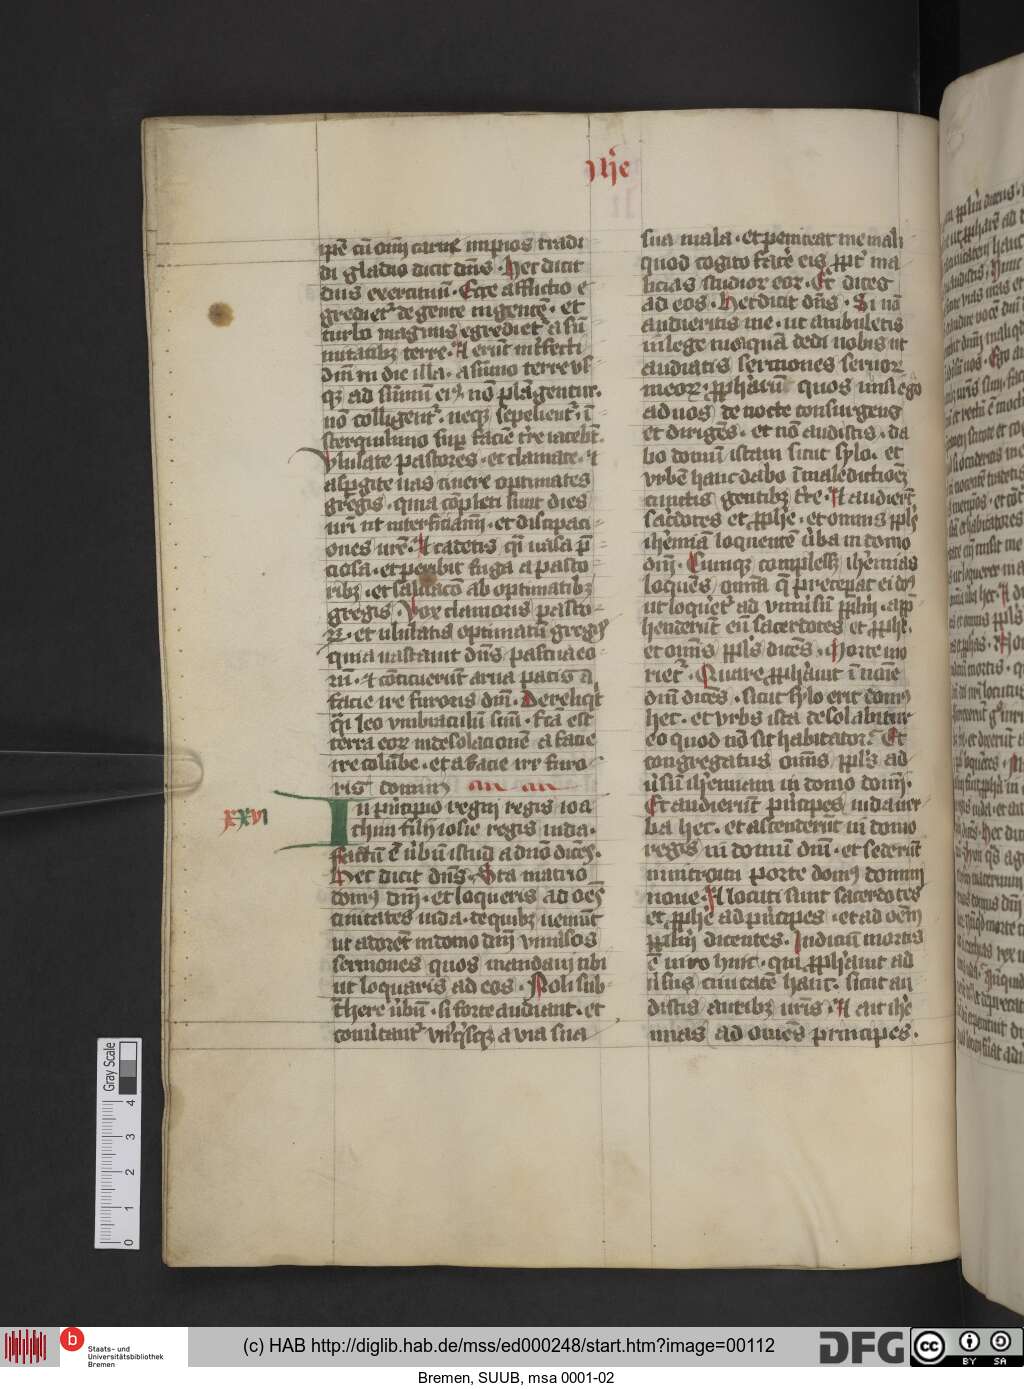 Jhe
ipse cū omī carne impios tradi
di gladio dicit dn̄s · Hec dicit
dn̄s exercituū · Ecce afflictio e
gredietᷣ de gente in gentē · et
turbo magnus egredietᷣ a sū
mitatibꝫ terre · Et erunt interfecti
dn̄i in die illa · a sūmo terre vsꝫ
qꝫ ad sūmū eiꝰ nō plāgentur ·
nō colligentᷣ · neqꝫ sepelientᷣ · ī
sterquilinio sup̄ faciē tr̄re iacebūt ·
Ululate pastores · et clamate · ⁊
aspergite uos cinere optimates
gregis · quia cōpleti sunt dies
uri ut interficiamī · et dissipaci
ones ur̄e · Et cadetis qͣi uasa p̄
ciosa · et peribit fuga a pasto
ribꝫ · et saluacō ab optimatibꝫ
gregis · Vox clamoris pasto
rꝝ · et ululatꝰ optimatū gregis
quia uastauit dn̄s pascua eo
rū · ⁊ cōticuerūt arua pacis a
facie ire furoris dn̄i · Dereliqͥt
qͣi leo vmbraculū suū · fc̄a est
terra eoꝝ in desolacionē a facie
ire colūbe · et a facie ire furo
ris domini
XXVI
In pͥncipio regni regis ioa
chim filij iosie regis iuda ·
factū ē ūbū istud a dn̄o dicēs ·
Hec dicit dn̄s · Sta in atrio
domꝰ dn̄i · et loqueris ad oēs
ciuitates iuda · de quibꝫ ueniūt
ut adorēt in domo dn̄i vniūsos
sermones quos mandaui tibi
ut loquaris ad eos · Noli sub
tͣhere ūbū · si forte audiant · et
conuertantᷣ vnͧsqͥsqꝫ a via sua
sua mala · et peniteat me mali
quod cogito facͤe eis ꝓpt̄ ma
licias studioꝝ eoꝝ · Et dices
ad eos · Hec dicit dn̄s · Si nō
audieritis me · ut ambuletis
in lege mea quā dedi uobis ut
audiatis sermones seruoꝝ
meoꝝ · ꝓph̄arū quos misi ego
ad uos de nocte consurgens
et dirigēs · et nō audistis · da
bo domū istam sicut sylo · et
vrbē hanc dabo ī maledictionē
cunctis gentibꝫ tr̄re · Et audierūt
sac̄dotes et ꝓph̄e · et omnis ppl̄s
ih̄emiā loquentē ūba in domo
dn̄i · Cumqꝫ complesset ih̄emias
loquēs omīa q̄ preceperat ei dn̄s
ut loquetᷣ ad vniūsū ppl̄m · app̄
henderūt eū sacerdotes et ꝓph̄e ·
et omīs ppl̄s dicēs · Morte mo
rietᷣ · Quare ꝓph̄auit ī noīe
dn̄i dicēs · sicut sylo erit domꝰ
hec · et vrbs ista desolabitur
eo quod nō sit habitator · Et
congregatus omīs ppl̄s ad
ūsū ih̄emiam in domo domī ·
Et audierūt pͥncipes iuda uer
ba hec · et ascenderūt in domo
regis in domū dn̄i · et sederūt
in introitu porte domꝰ domini
noue · Et locuti sunt sacerdotes
et ꝓph̄e ad pͥncipes · et ad oēm
ppl̄m dicentes · Iudiciū mortis
ē uiro huic · qui ꝓph̄auit ad
ūsus ciuitatē hanc · sicut au
distis auribꝫ uris · Et ait ih̄e
mias ad omēs principes ·
Gray Scale
0 1 2 3 4
Staats- und
Universitätsbibliothek
Bremen
(c) HAB http://diglib.hab.de/mss/ed000248/start.htm?image=00112
DFG
cc BY SA
Bremen, SUUB, msa 0001-02